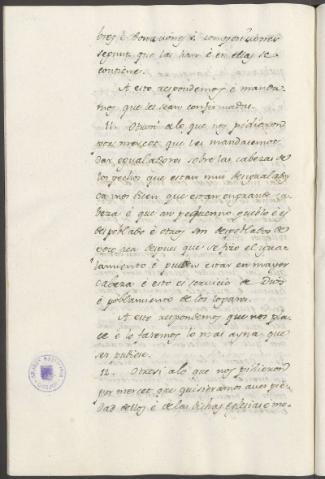 bres è donaciones è
segunt que las han è en ellas se
contiene.
A esto respondemos è manda-
mos que les sean confirmados.
11. Otrosi à lo que nos pidieron
por merçet que les mandasemos
dar egualadores sobre las cabezas de
los pechos que estan mui desigualados
ca mos bien que estan en grande ca-
beza è que an pequenno pueblo è es
despoblado è otros son despoblados de
poco acà despues que se fizo el igua-
lamiento è pueden estar en mayor
cabeza è esto es servicio de Dios
è poblamiento de los logares.
A esto respondemos que nos pla-
ce è lo faremos lo mas ayna que
ser pudiere.
12. Otrosi à lo que nos pidieron
por merçet que quisieramos aver pie-
dad dellos è de las dichas Eglesias è mo-